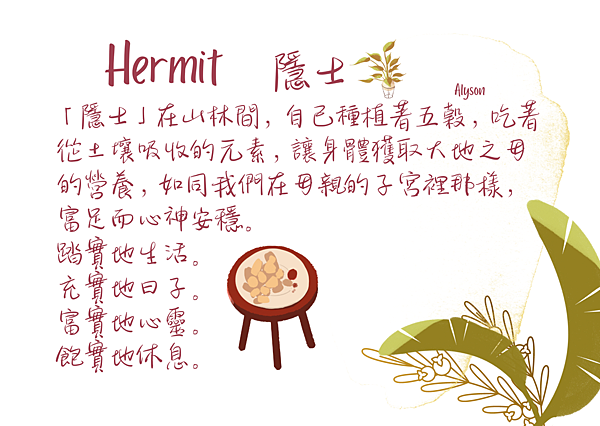 Hermit 隱士
Alyson
「隱士」在山林間，自己種植著五穀，吃著
從土壤吸收的元素，讓身體獲取大地之母
的營養，如同我們在母親的子宮裡那樣，
富足而心神安穩。
踏實地生活。
充實地日子。
富實地心靈。
飽實地休息。